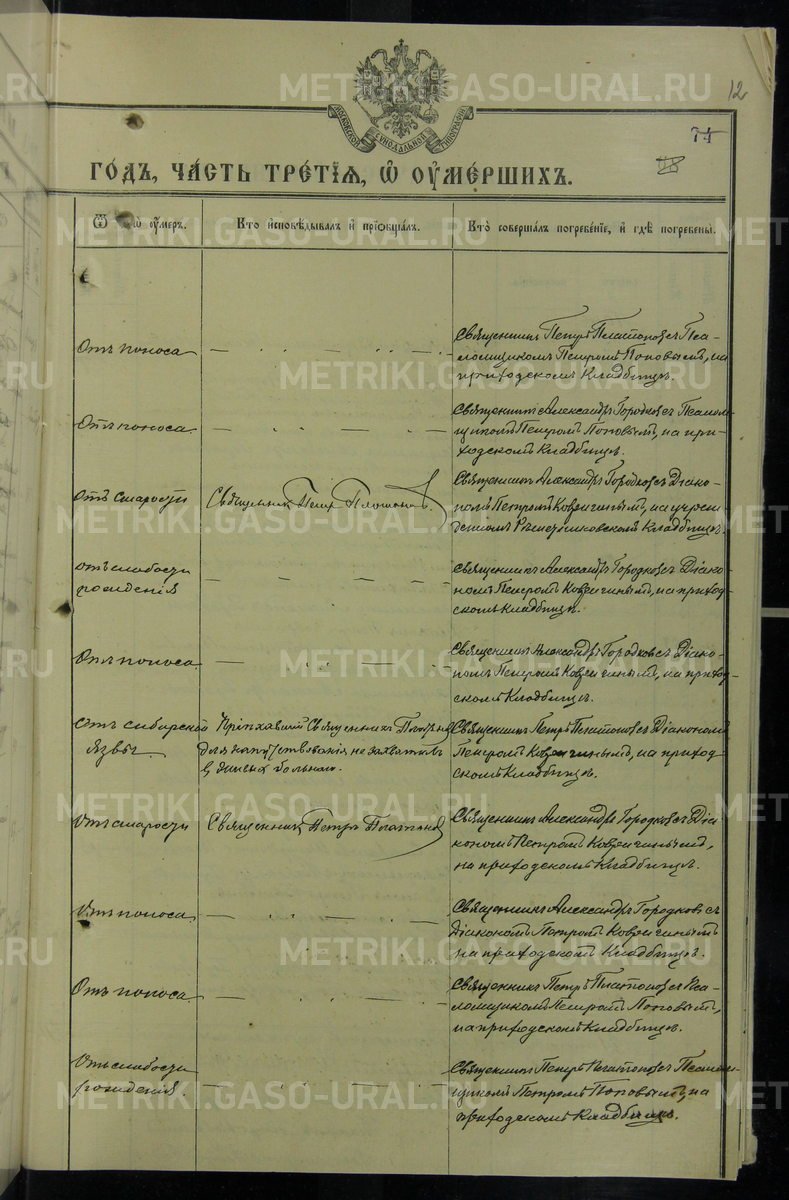 12
75
МОСКОВСКОЙ СѴНОДАЛЬНОЙ ТИПОГРАФІИ
ГОДЪ, ЧАСТЬ ТРЕТІЯ, Ѿ ОУМЕРШИХЪ.
Кто исповѣдывалъ и пріобщалъ.
Кто совершалъ погребеніе, и гдѣ погребены.
Отъ поноса
Священникъ Петръ Платоновъ с Пса-
ломщикомъ Петромъ Поповымъ, на
приходскомъ кладбищѣ.
Отъ поноса
Священникъ Александръ Городковъ с Псалом-
щикомъ Петромъ Поповымъ, на при-
ходскомъ кладбищѣ.
Отъ старости
Священникъ Петръ Платоновъ.
Священникъ Александръ Городковъ с Діако-
номъ Петромъ на
кладбищѣ.
отъ слабости
рожденія
Священникъ Александръ Городковъ с Діако-
номъ Петромъ на приход-
скомъ кладбищѣ.
Отъ поноса
Священникъ Александръ Городковъ с Діако-
номъ Петромъ на приход-
скомъ кладбищѣ.
Отъ сибирской
язвы.
Пріѣхавшій Священникъ
для напутствованія не засталъ
в живыхъ
Священникъ Петръ Платоновъ с Діакономъ
Петромъ на приход-
скомъ кладбищѣ.
Отъ старости
Священникъ Петръ Платоновъ
Священникъ Александръ Городковъ с Діа-
кономъ Петромъ
на приходскомъ кладбищѣ.
Отъ поноса
Священникъ Александръ Городковъ с
Діакономъ Петромъ
на приходскомъ кладбищѣ.
Отъ поноса
Священникъ Петръ Платоновъ с Пса-
ломщикомъ Петромъ Поповымъ,
на приходскомъ кладбищѣ.
Отъ слабости
рожденія.
Священникъ Петръ Платоновъ с Псалом-
щикомъ Петромъ Поповымъ, на
приходскомъ кладбищѣ.
METRIKI.GASO-URAL.RU